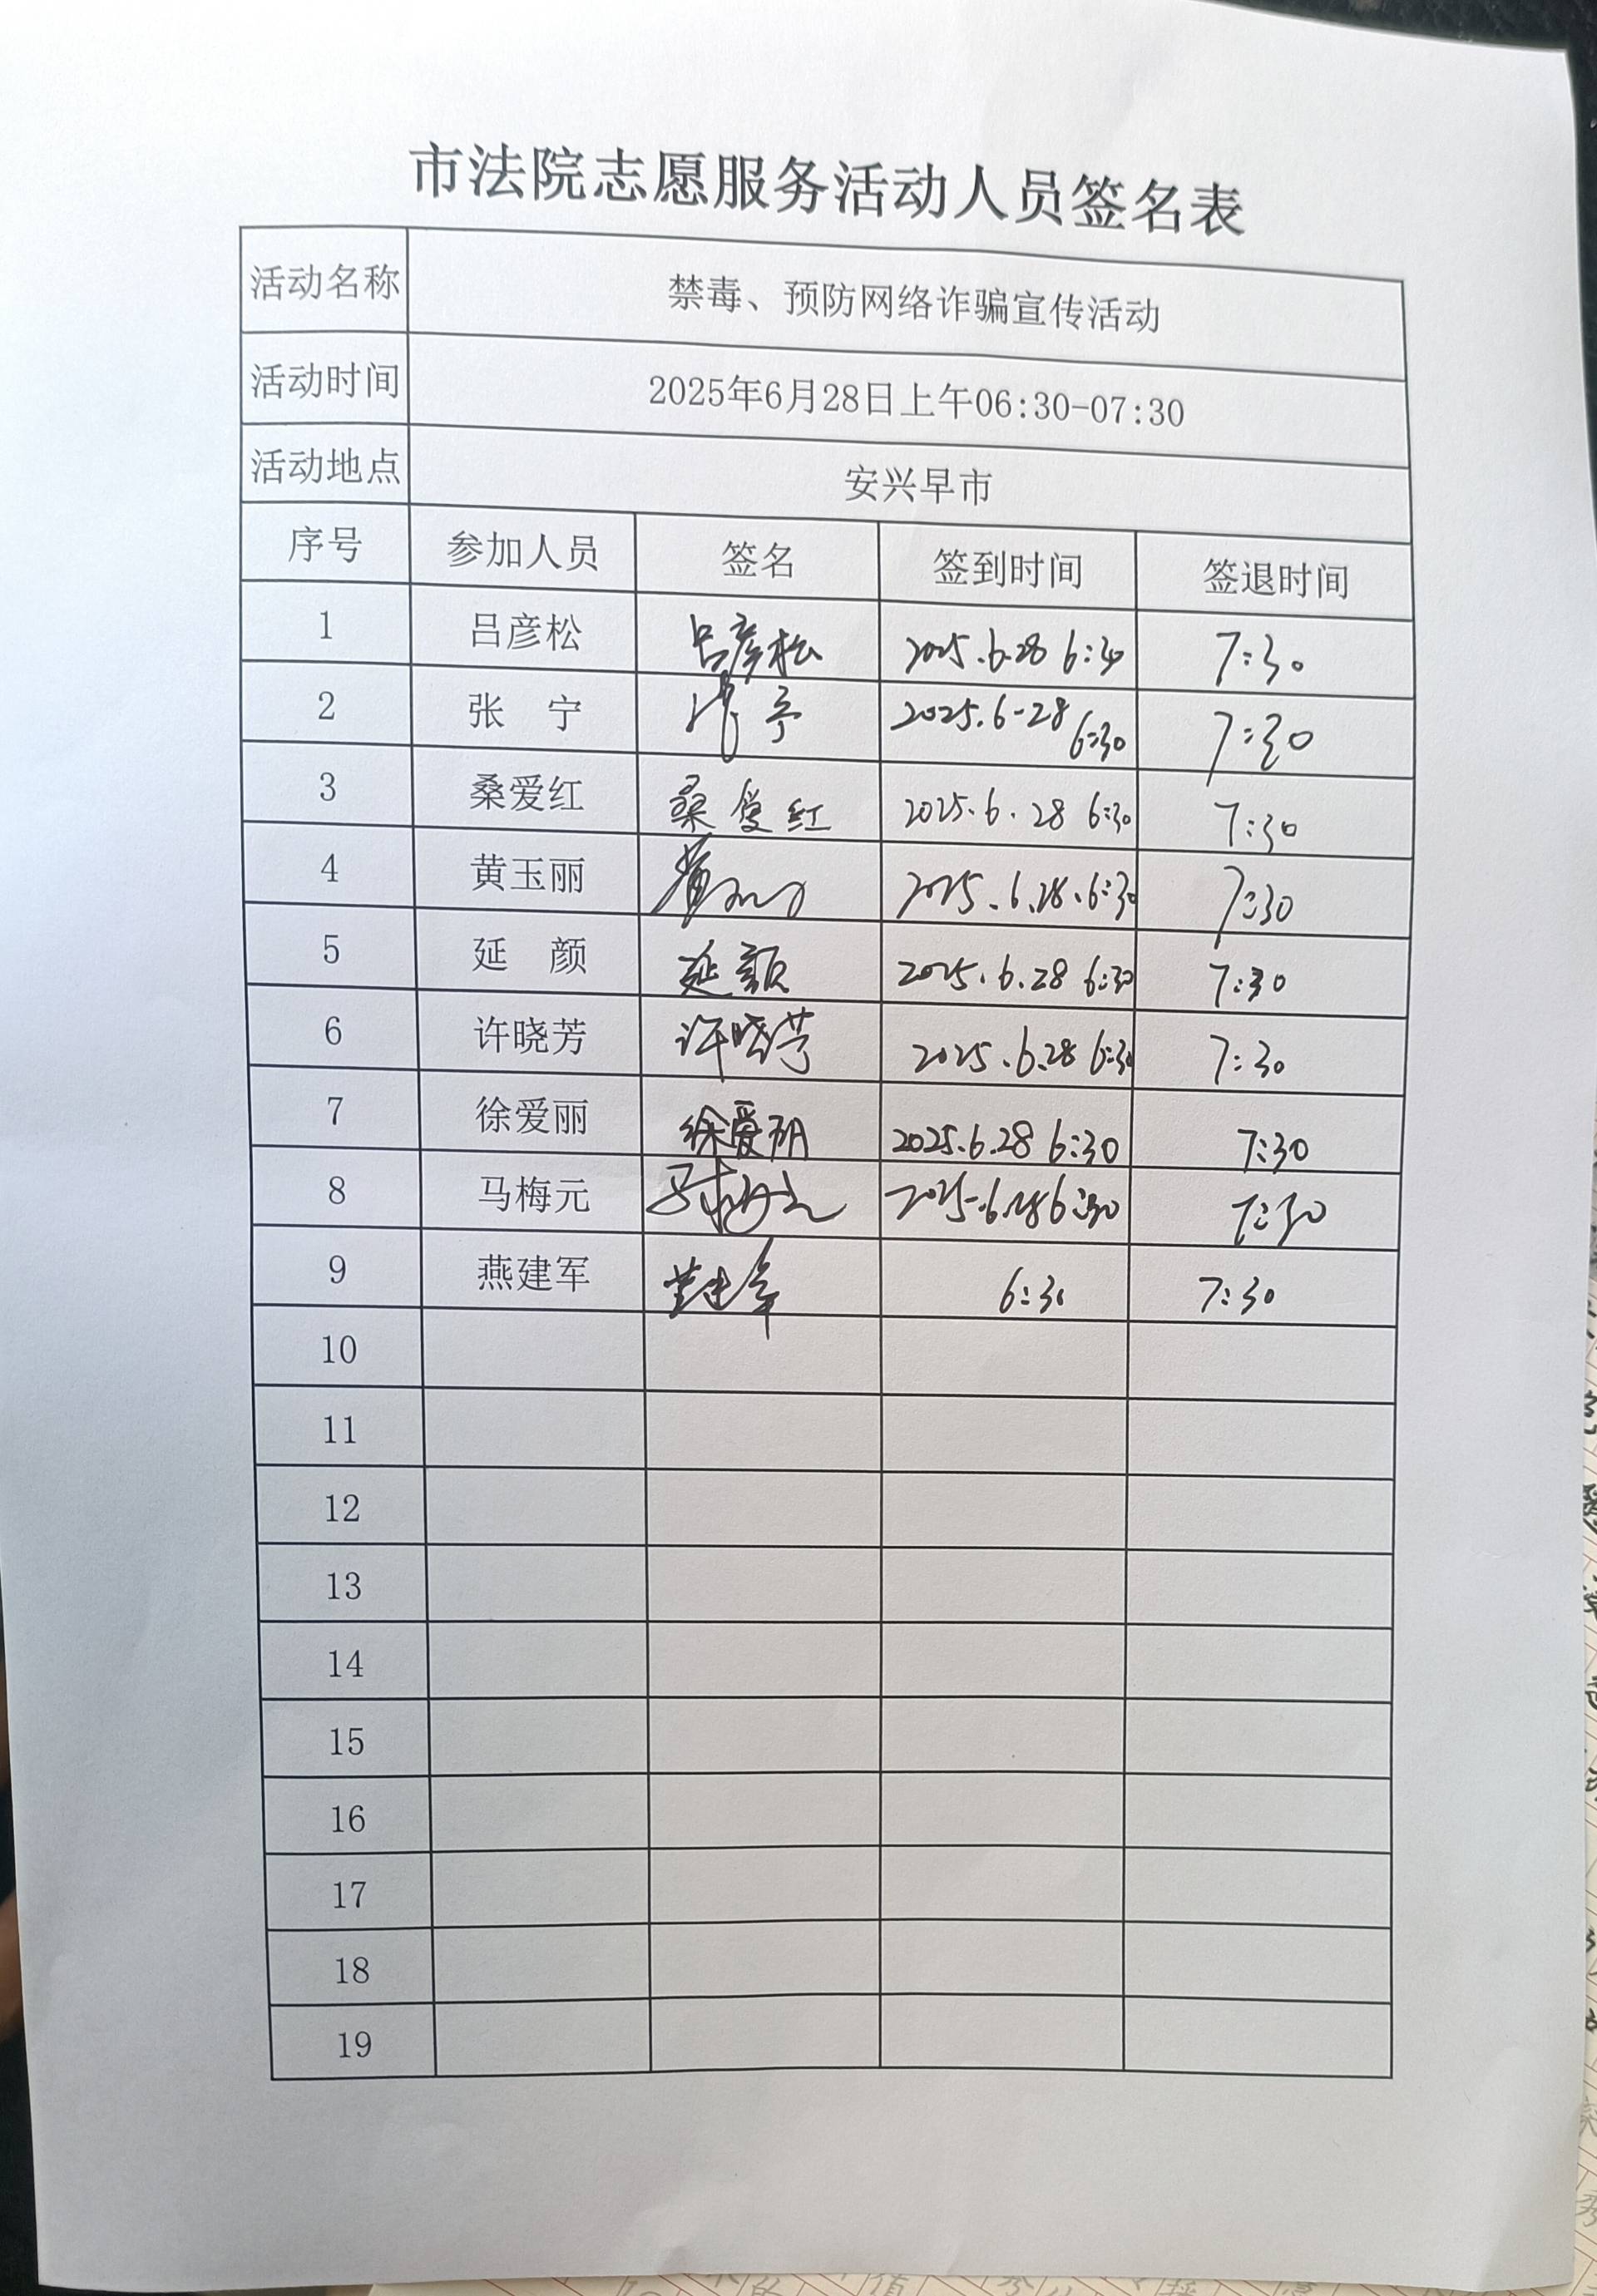 市法院志愿服务活动人员签名表
活动名称 禁毒、预防网络诈骗宣传活动
活动时间 2025年6月28日上午06:30-07:30
活动地点 安兴早市
序号 参加人员 签名 签到时间 签退时间
1 吕彦松 吕彦松 2025.6.28 6:30 7:30
2 张 宁 张宁 2025.6-28 6:30 7:30
3 桑爱红 桑爱红 2025.6.28 6:30 7:30
4 黄玉丽 黄玉丽 2025.6.28.6:30 7:30
5 延 颜 延颜 2025.6.28 6:30 7:30
6 许晓芳 许晓芳 2025.6.28 6:30 7:30
7 徐爱丽 徐爱丽 2025.6.28 6:30 7:30
8 马梅元 马梅元 2025.6.28 6:30 7:30
9 燕建军 燕建军 6:30 7:30
10
11
12
13
14
15
16
17
18
19